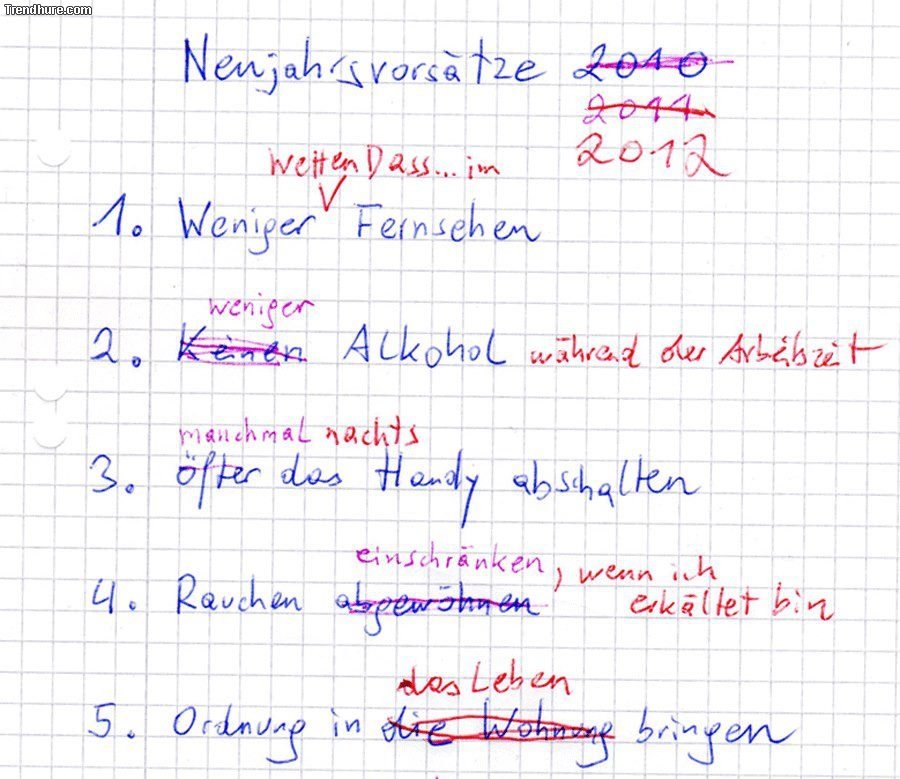 Trendhure.com
Neujahrsvorsätze 2010
2011
2012
Wetten Dass... im
1. Weniger Fernsehen
weniger
2. Keinen Alkohol während der Arbeitszeit
manchmal nachts
3. öfter das Handy abschalten
einschränken, wenn ich
4. Rauchen abgewöhnen erkältet bin
das Leben
5. Ordnung in die Wohnung bringen